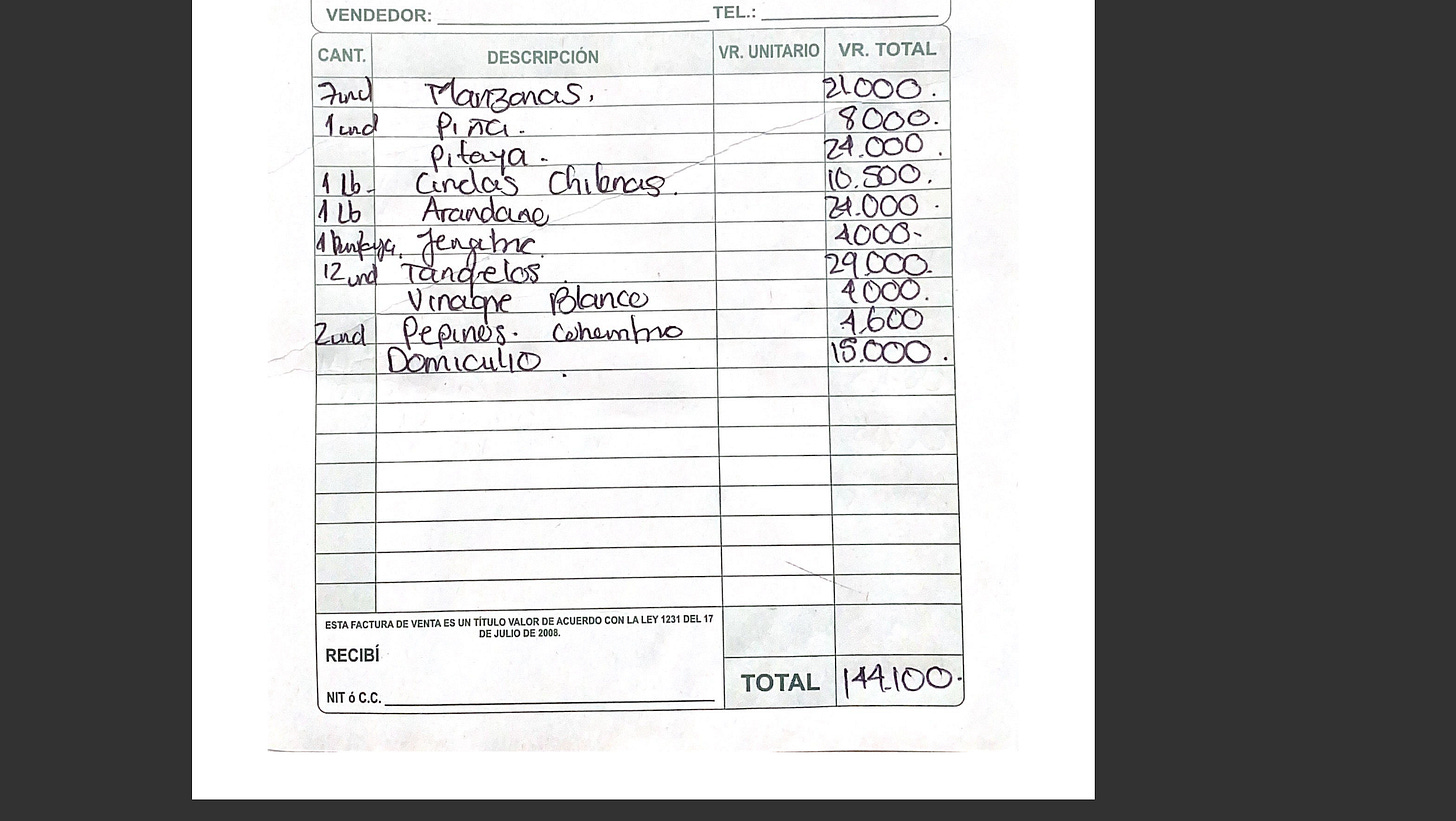 VENDEDOR: TEL.:
CANT. DESCRIPCIÓN VR. UNITARIO VR. TOTAL
7und Manzanas. 21.000.
1und Piña. 8000.
Pitaya. 24.000.
1 Lb. Ciruelas Chilenas. 10.500.
1 Lb Arandano 24.000.
1 Jengibre. 4000-
12und Tangelos. 29.000.
Vinagre Blanco 4000.
2und Pepinos. Cohombro 4.600
Domicilio. 15.000.
ESTA FACTURA DE VENTA ES UN TÍTULO VALOR DE ACUERDO CON LA LEY 1231 DEL 17
DE JULIO DE 2008.
RECIBÍ
NIT ó C.C.
TOTAL 144.100.